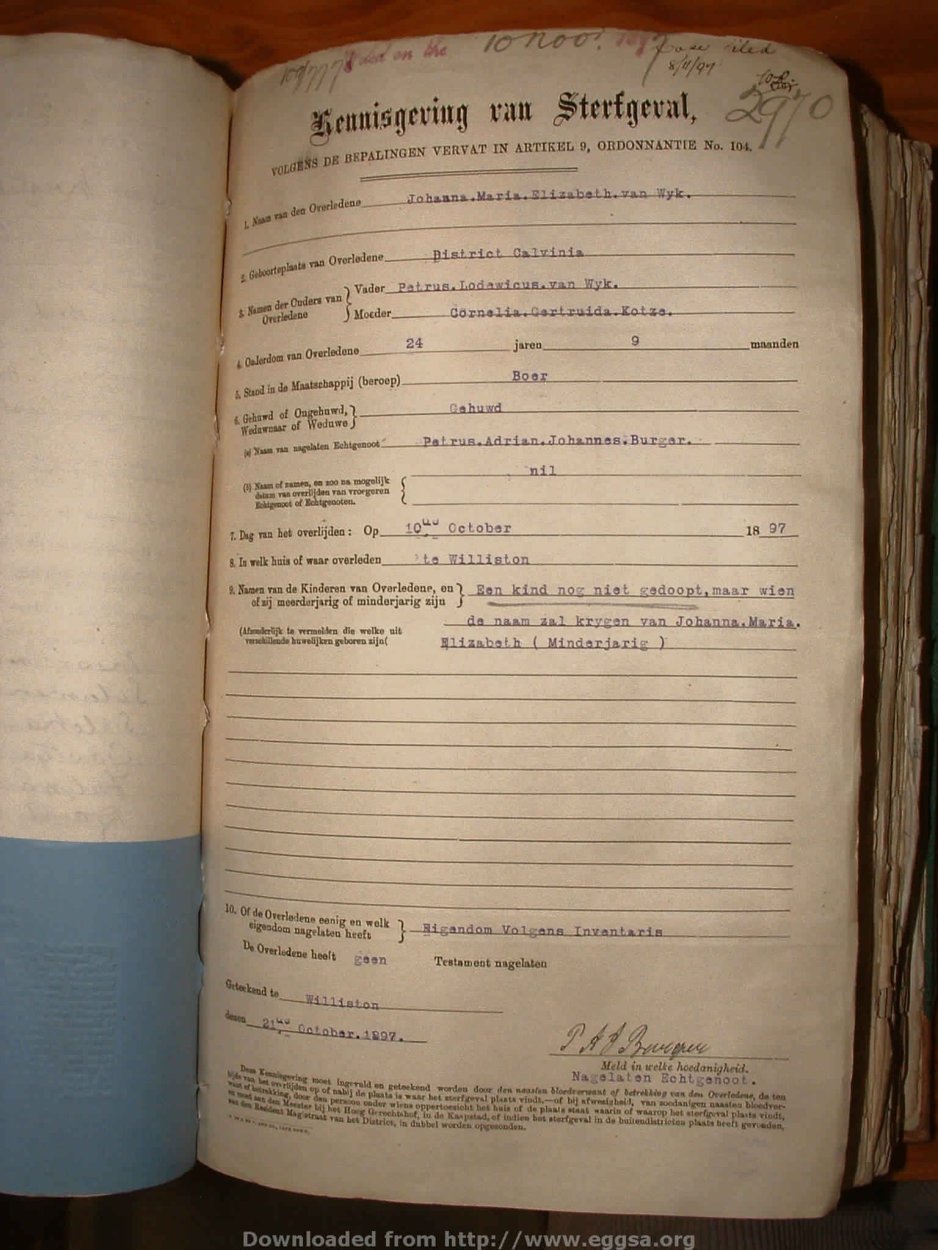 Filed on the 10 Nov. 1897
Case filed
8/11/97
2970
Kennisgeving van Sterfgeval,
VOLGENS DE BEPALINGEN VERVAT IN ARTIKEL 9, ORDONNANTIE No. 104.
1. Naam van den Overledene Johanna.Maria.Elizabeth.van Wyk.
2. Geboorteplaats van Overledene District Calvinia
3. Namen der Ouders van Overledene } Vader Petrus.Lodewicus.van Wyk.
Moeder Cornelia.Gertruida.Kotze.
4. Ouderdom van Overledene 24 jaren 9 maanden
5. Stand in de Maatschappij (beroep) Boer
6. Gehuwd of Ongehuwd, Weduwnaar of Weduwe } Gehuwd
(a) Naam van nagelaten Echtgenoot Petrus.Adrian.Johannes.Burger.
(b) Naam of namen, en zoo na mogelijk
datum van overlijden van vroegeren
Echtgenoot of Echtgenooten. { nil
7. Dag van het overlijden: Op 10de October 18 97
8. In welk huis of waar overleden te Williston
9. Namen van de Kinderen van Overledene, en
of zij meerderjarig of minderjarig zijn } Een kind nog niet gedoopt,maar wien
de naam zal krygen van Johanna.Maria.
(Afzonderlijk te vermelden die welke uit
verschillende huwelijken geboren zijn( Elizabeth ( Minderjarig )
10. Of de Overledene eenig en welk
eigendom nagelaten heeft } Eigendom Volgens Inventaris
De Overledene heeft geen Testament nagelaten
Geteekend te Williston
dezen 21ste October.1897.
P A J Burger
Meld in welke hoedanigheid.
Nagelaten Echtgenoot.
Deze Kennisgeving moet ingevuld en geteekend worden door den naasten bloedverwant of betrekking van den Overledene, de ten
tijde van het overlijden op of nabij de plaats is waar het sterfgeval plaats vindt,—of bij afwezigheid, van zoodanigen naasten bloedver-
want of betrekking, door den persoon onder wiens oppertoezicht het huis of de plaats staat waarin of waarop het sterfgeval plaats vindt,
en moet aan den Meester bij het Hoog Gerechtshof, in de Kaapstad, of indien het sterfgeval in de buitendistricten plaats heeft gevonden,
aan den Resident Magistraat van het District, in dubbel worden opgezonden.
Downloaded from http://www.eggsa.org